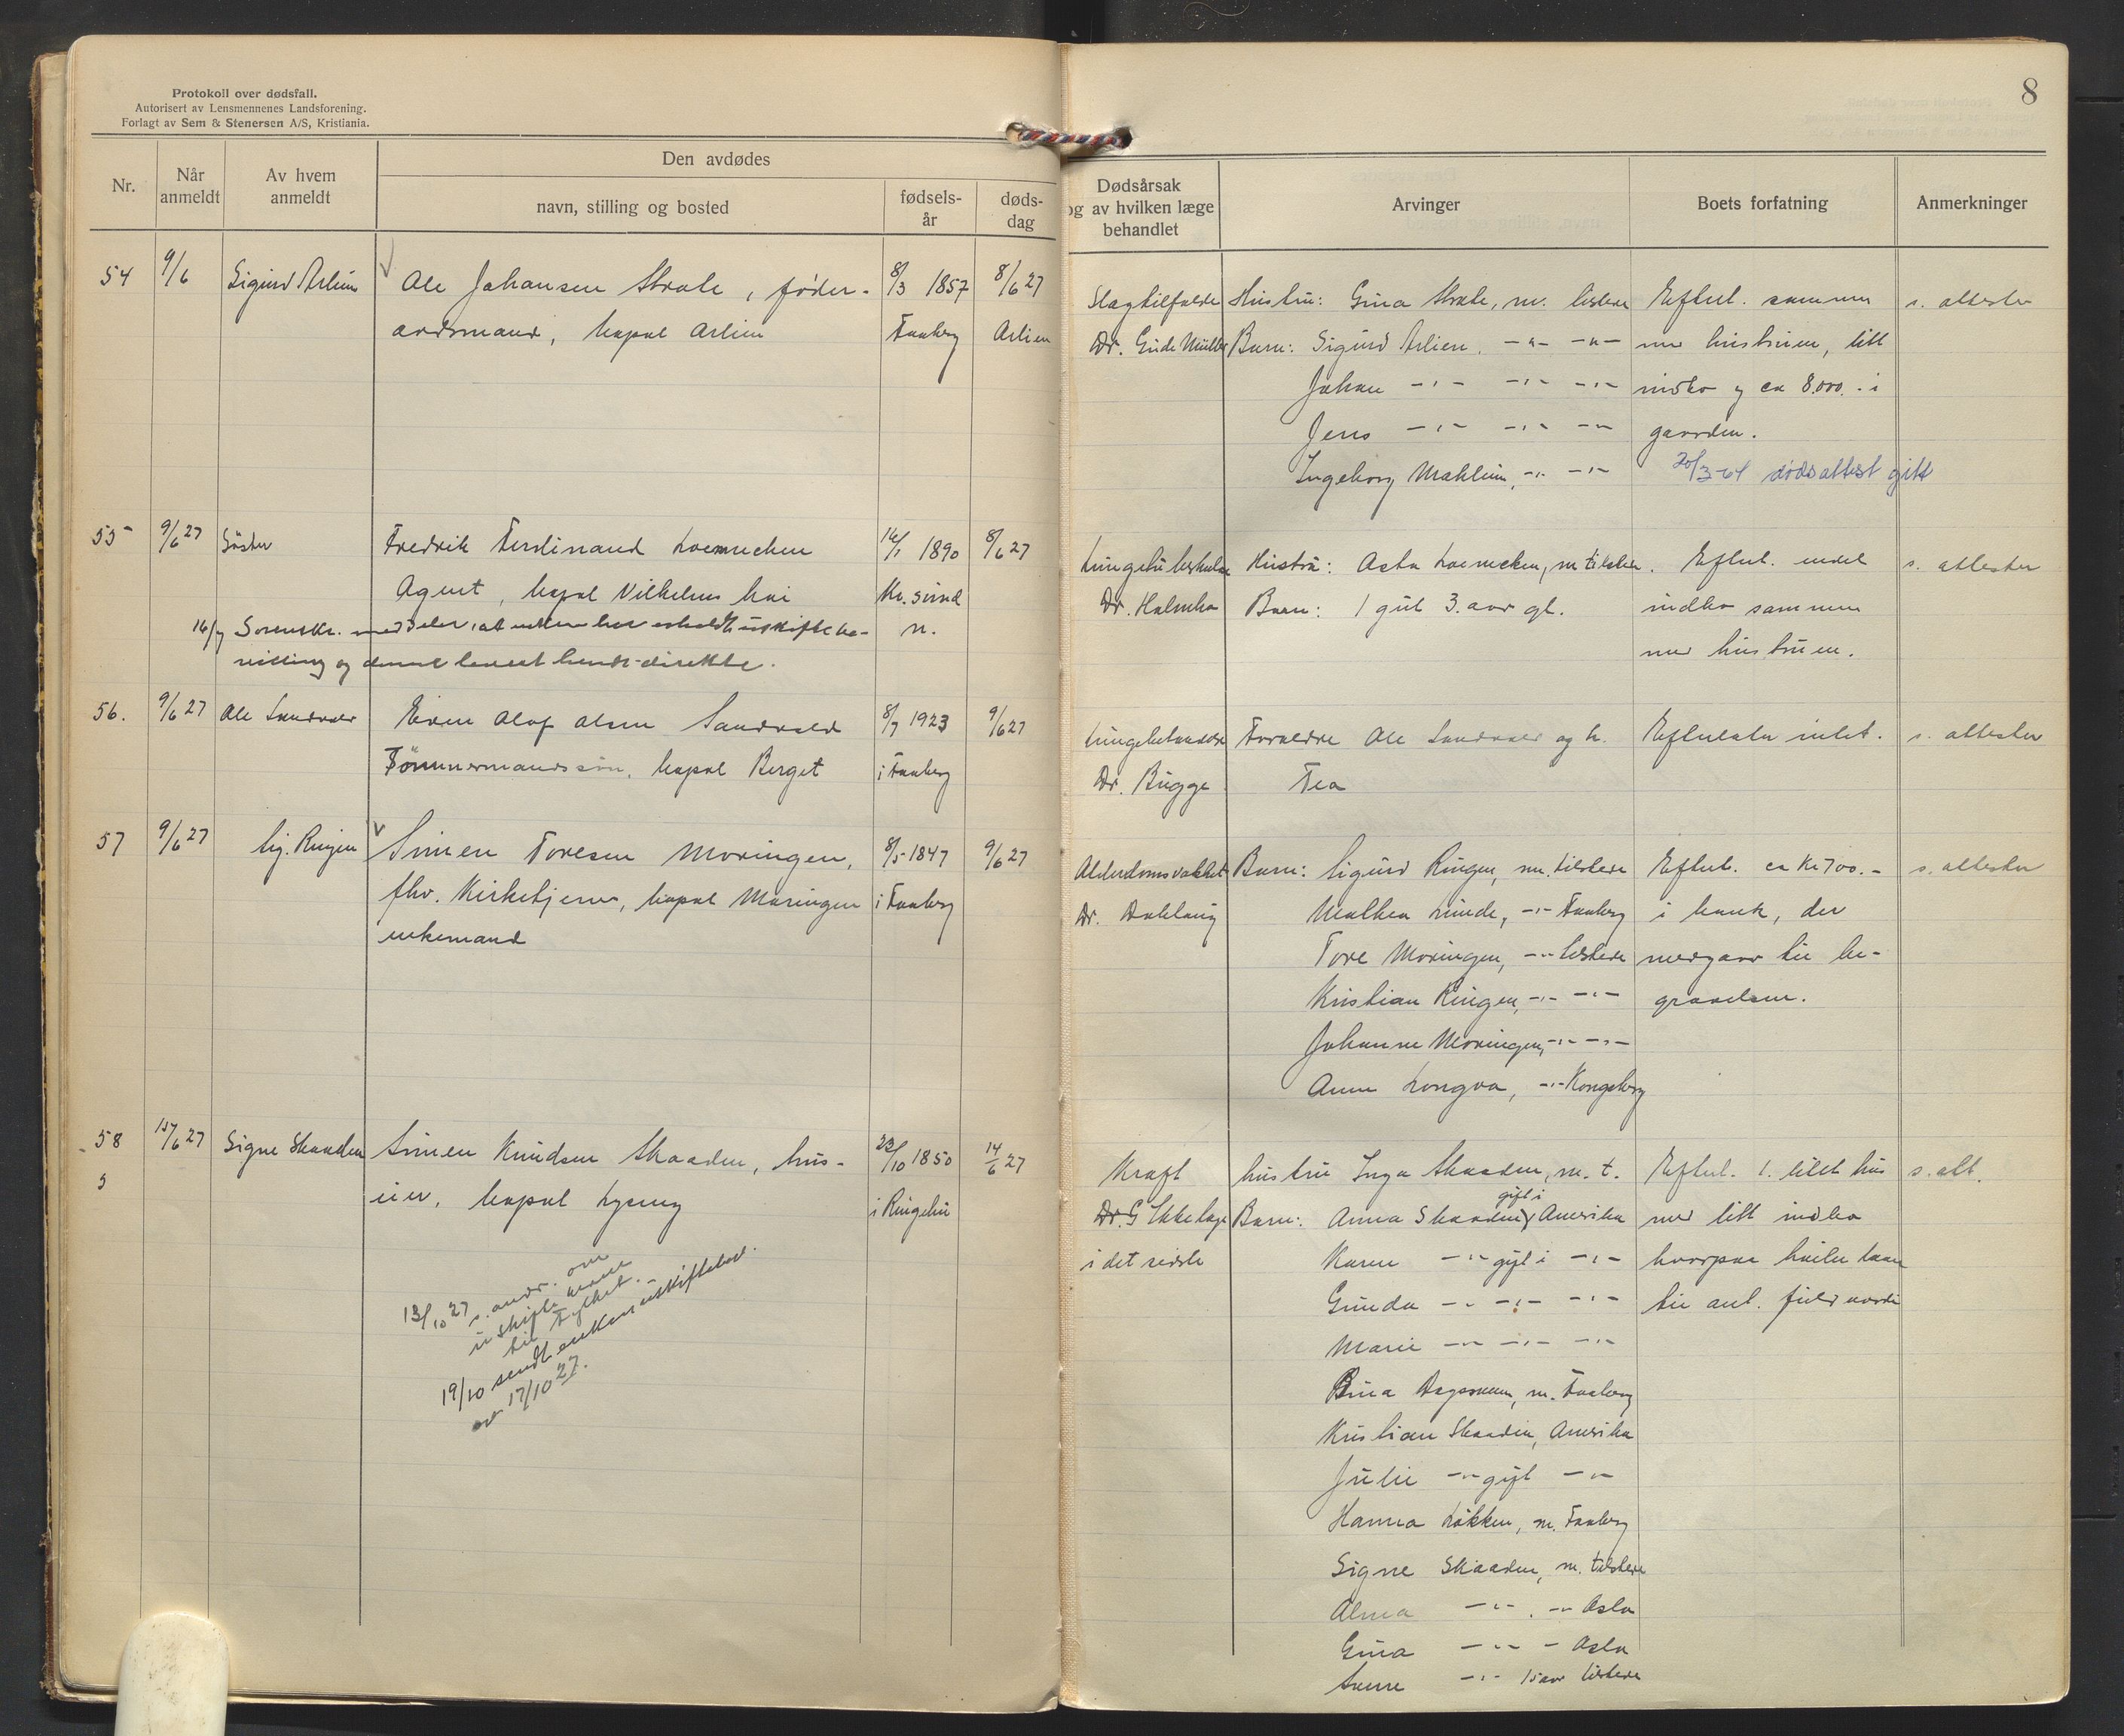 Protokoll over dødsfall.
Autorisert av Lensmennenes Landsforening.
Forlagt av Sem & Stenersen A/S, Kristiania.
Nr.
Når anmeldt
Av hvem anmeldt
Den avdødes
navn, stilling og bosted
fødsels-
år
døds-
dag
54 9/6 Sigurd Arlien Ole Johansen , føder- 8/3 1857 8/6 27
aadsmand, bopæl Arlien Faaberg Arlien
55 9/6 27 Søster Fredrik Ferdinand Loennechen 16/1 1890 8/6 27
Agent, bopæl Vilhelms Kr. sund
16/7 Sorenskr. meddeler, at enken har erholdt uskiftebe- n.
villing og denne levert hende direkte.
56. 9/6 27 Ole Sandvold Even Olaf Olsen Sandvold 8/7 1923 9/6 27
Tømmermandssøn, bopæl Berget i Faaberg
57 9/6 27 Sig. Ringen Simen Toresen Moringen, 8/5 1847 9/6 27
fhv. Kirketjener, bopæl Moringen i Faaberg
enkemand
58 15/6 27 Signe Skaaden Simen Knudsen Skaaden, hus- 23/10 1850 14/6 27
5 eier, bopæl Lyseng i Ringebu
13/10 27 s. andr. om
uskifte
til fylket.
19/10 sendt enken uskiftebev.
av 17/10 27.
8
Dødsårsak
og av hvilken læge
behandlet
Arvinger
Boets forfatning
Anmerkninger
Slagtilfælde Hustru: Gina , m. tilstede Efterl. sammen s. attester
Dr. Gude Müller Barn: Sigurd Arlien, -"- -"- med hustruen, litt
Johan -"- -"- -"- indbo og ca 8.000.- i
Jens -"- -"- -"- gaarden.
Ingeborg Mæhlum, -"- -"- 20/3-64 dødsattest gitt
Dr. Holmboe Hustru: Asta Loennechen, m. tilstede. Efterl. endel s. attester
Barn: 1 gut 3. aar gl. indbo sammen
med hustruen.
Lungebetændelse Forældre Ole Sandvold og h. Efterlater intet. s. attester
Dr. Bugge Tea
Alderdomssvakhet Barn: Sigurd Ringen, m. tilstede Efterl. ca Kr 700.- s. attester
Dr. Mathea Lunde, -"- Faaberg i bank, der
Tore Moringen, -"- tilstede medgaar til be-
Kristian Ringen, -"- -"- gravelsen.
Johanne Moringen, -"- -"-
Anne Longva, -"- Kongsberg
Kræft hustru Inga Skaaden, m. t. Efterl. 1. litet hus s. att.
Dr. G Ikke læge Barn: Anna Skaaden, gift i Amerika med litt indbo
i det sidste Karen -"- gift i -"- hvorpaa hviler laan
Gunda -"- -"- -"- til ant. fuld værdi
Marie -"- -"- -"-
m. Faaberg
Kristian Skaaden, Amerika
Julie -"- gift -"-
Hanna Løkken, m. Faaberg
Signe Skaaden, m. tilstede
Alma -"- -"- Oslo
Gina -"- - Oslo
-"- 15 aar tilstede